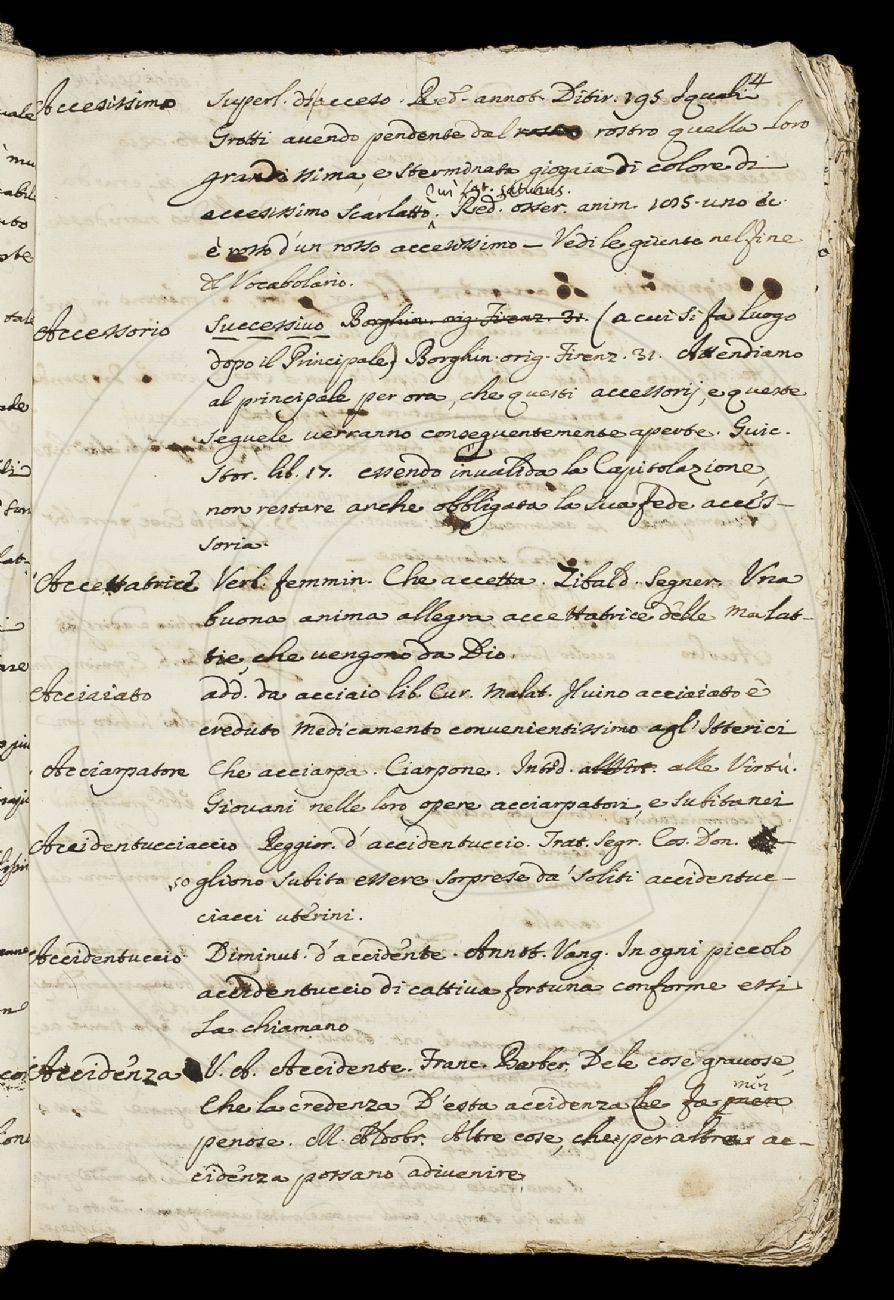 4
Accesissimo Superl. d'acceso. Red. annot. Ditir. 195 I quali
Grotti avendo pendente dal rostro quella loro
grandissima, e sterminata giogaia di colore di
Qui lat. saturus.
accesissimo scarlatto. Red. osser. anim. 105. uno &c.
è rosso d'un rosso accesissimo — Vedi le giunte nel fine
del Vocabolario.
Accessorio Successivo Borghin. orig. Firenz. 31. (a cui si fa luogo
dopo il Principale) Borghin. orig. Firenz. 31. Attendiamo
al principale per ora, che questi accessorij, e queste
seguele verranno conseguentemente aperte. Guic.
Stor. lib. 17. essendo invalida la Capitolazione,
non restare anche obbligata la sua fede acces-
soria.
Accettatrice Verl. femmin. Che accetta. Zibald. Segner. Una
buona anima allegra accettatrice delle malat-
tie, che vengono da Dio.
Acciaiato add. da acciaio lib. Cur. Malat. Il vino acciaiato è
creduto medicamento convenientissimo agl'Itterici
Acciarpatore Che acciarpa. Ciarpone. Introd. alle Virt. alle Virtù.
Giovani nelle loro opere acciarpatori, e subitanei
Accidentucciaccio Peggior. d'accidentuccio. Trat. Segr. Cos. Don.
sogliono subito essere sorprese da' soliti accidentuc-
ciacci uterini.
Accidentuccio Diminut. d'accidente. Annot. Vang. In ogni piccolo
accidentuccio di cattiva fortuna conforme essi
la chiamano
Accidenza V. A. Accidente. Franc. Barber. Dele cose gravose,
men
Che la credenza D'esta accidenza le fa
penose. M. Aldobr. Altre cose, che per altre ac-
cidenza possano adivenire